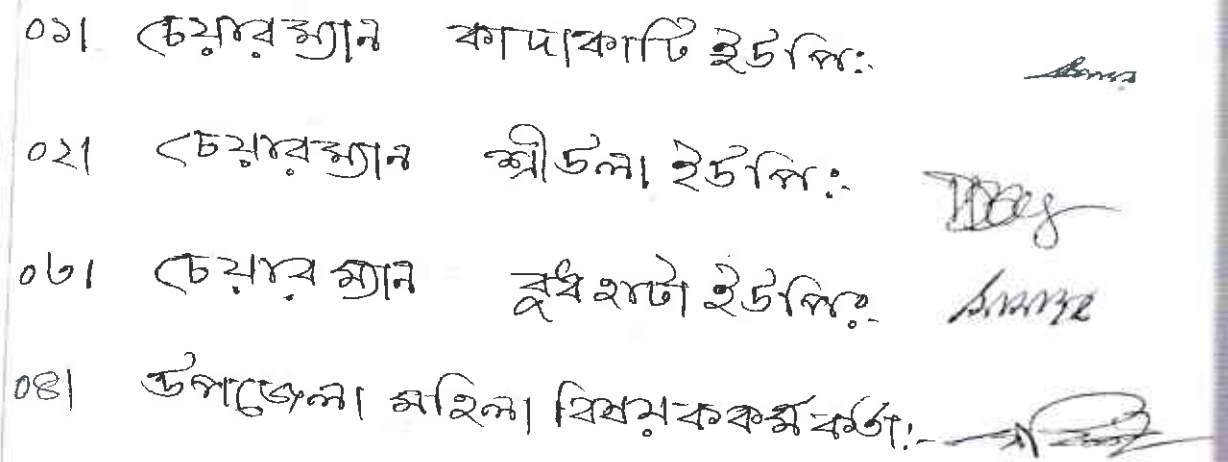 ০১। চেয়ারম্যান কাদাকাটি ইউপিঃ
০২। চেয়ারম্যান শ্রীউলা ইউপিঃ
০৩। চেয়ারম্যান বুধহাটা ইউপিঃ
০৪। উপজেলা মহিলা বিষয়ক কর্মকর্তাঃ-